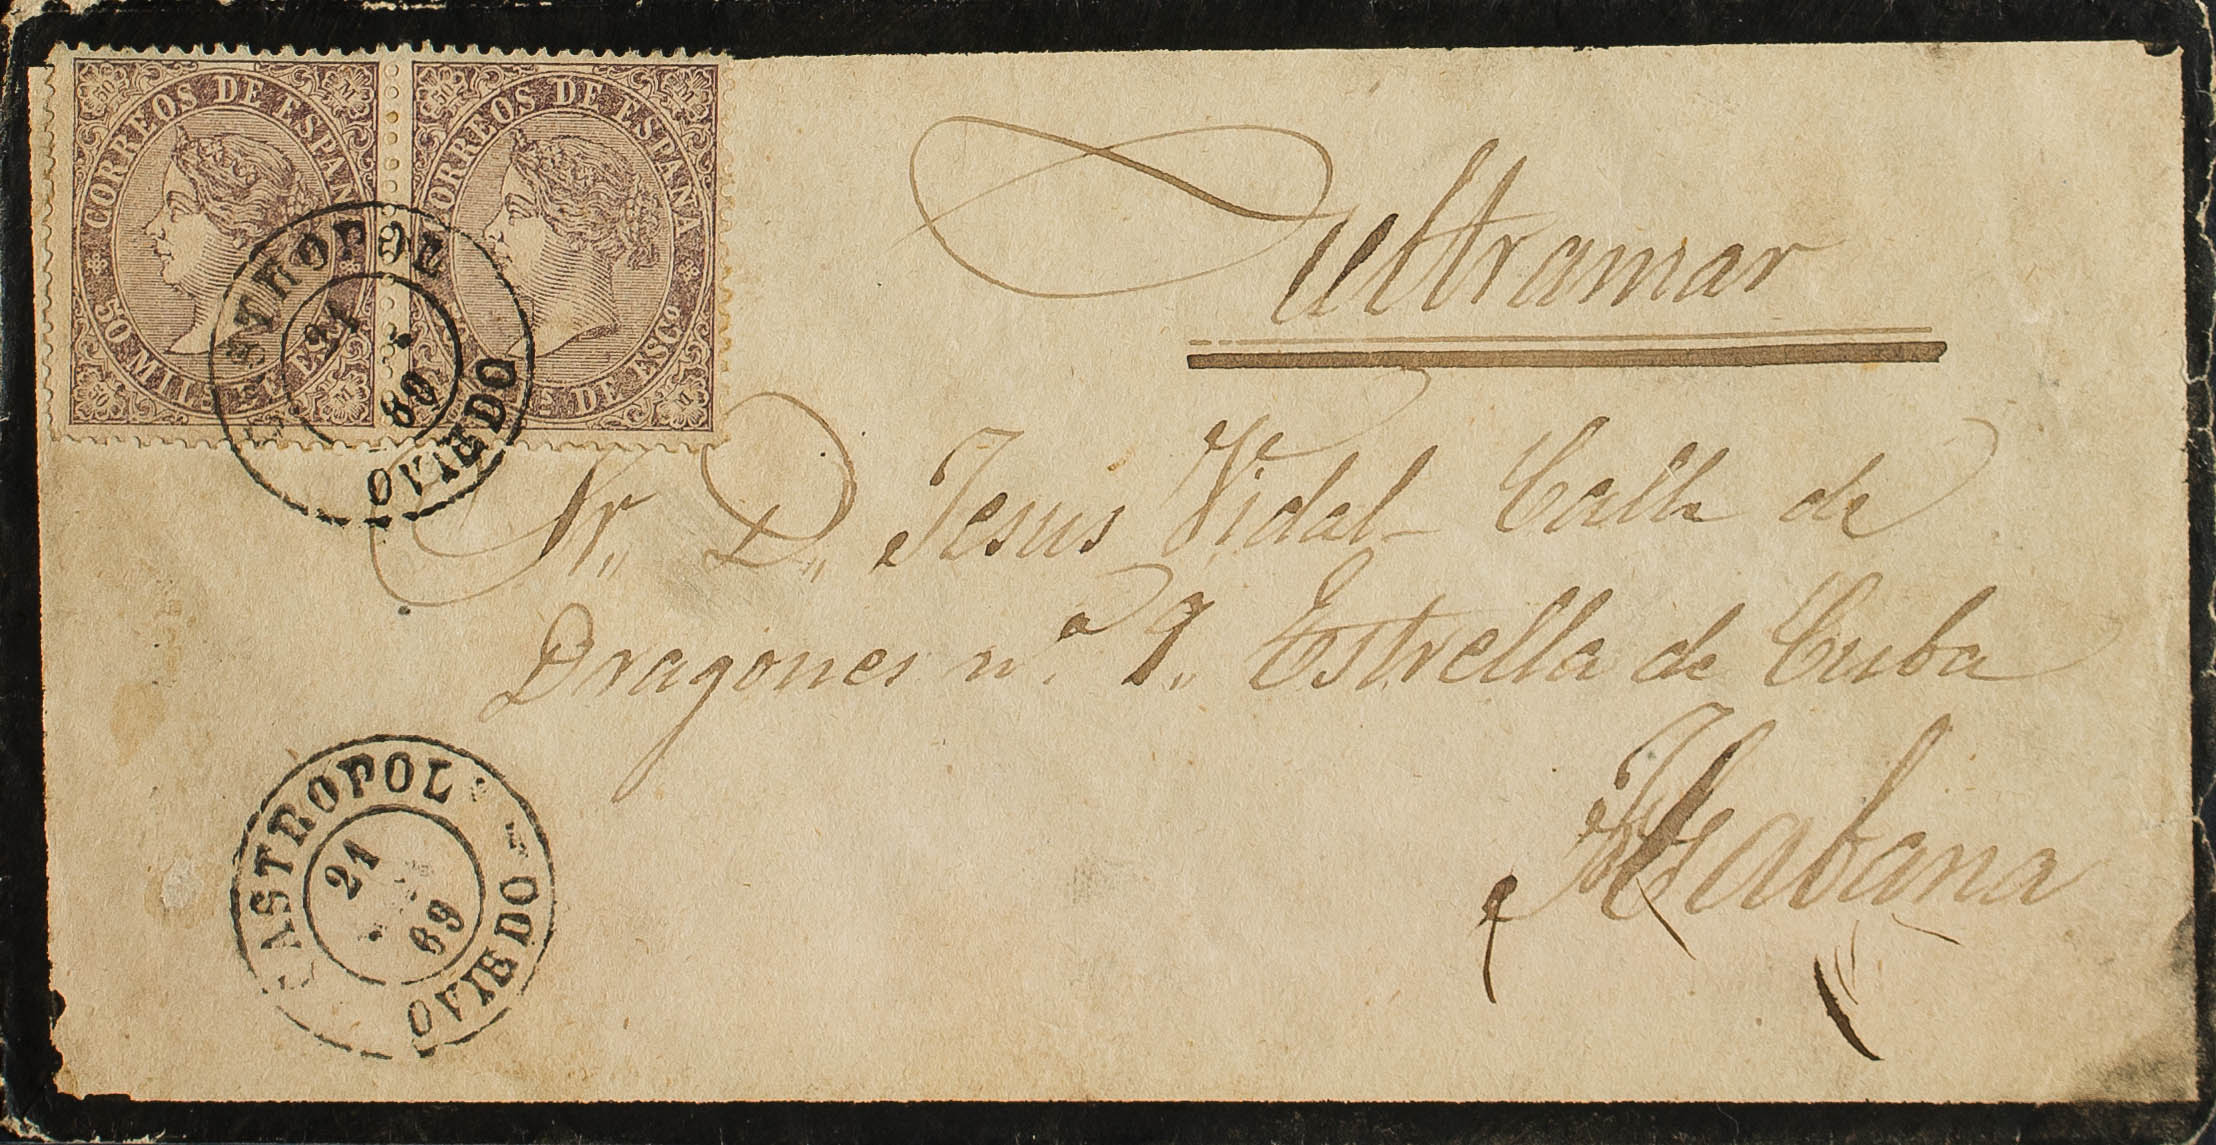 CORREOS DE ESPAÑA
50 MILS DE ESCO
CORREOS DE ESPAÑA
MILS DE ESCO
CASTROPOL
21
69
OVIEDO
Ultramar
Sr,, D,, Jesus Vidal Calle de
Dragones nº 9,, Estrella de Cuba
Habana
CASTROPOL
21
69
OVIEDO